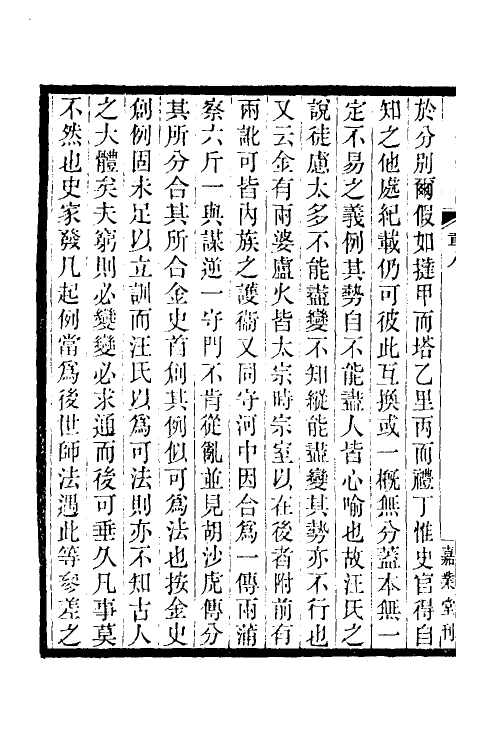 於分别爾假如撻甲而塔乙里丙而禮丁惟史官得自
知之他處紀載仍可彼此互換或一概無分蓋本無一
定不易之義例其勢自不能盡人皆心喻也故汪氏之
說徒慮太多不能盡變不知縱能盡變其勢亦不行也
又云金有兩婆盧火皆太宗時宗室以在後者附前有
兩訛可皆内族之護衞又同守河中因台爲一傳兩蒲
察六斤一與謀逆一守門不肯從亂並見胡沙虎傳分
其所分合其所合金史首創其例似可爲法也按金史
創例固未足以立訓而汪氏以爲可法則亦不知古人
之大體矣夫窮則必變變必求通而後可垂久凡事莫
不然也史家發凡起例當爲後世師法遇此等參差之
嘉業堂刊